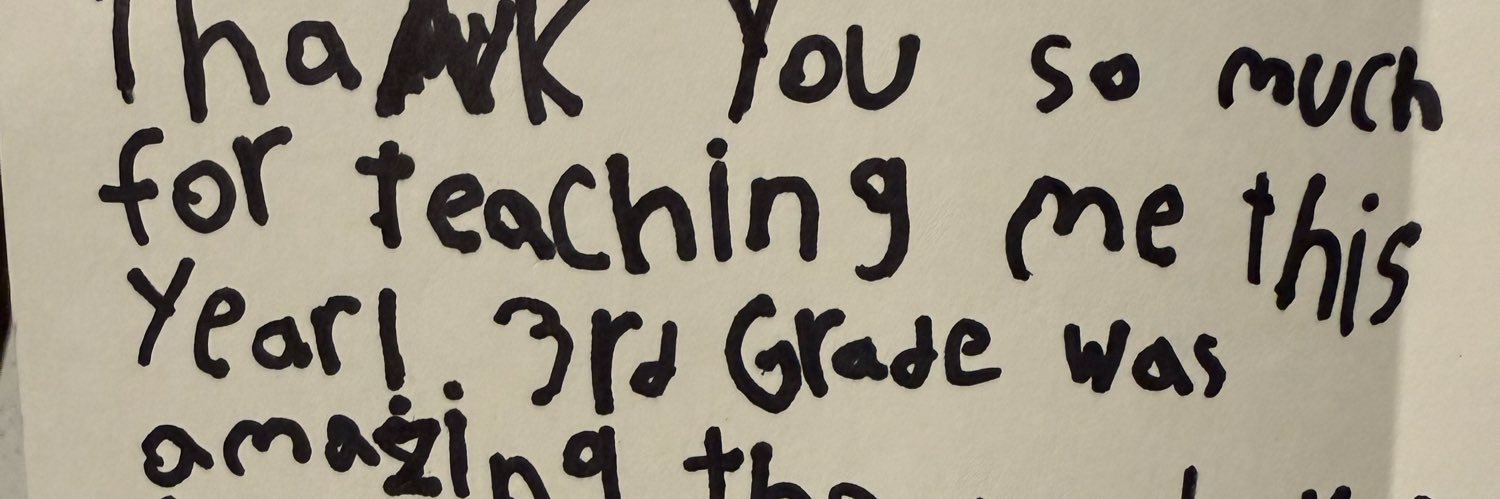 Thank You so much
for teaching me this
Year! 3rd Grade was
amazing